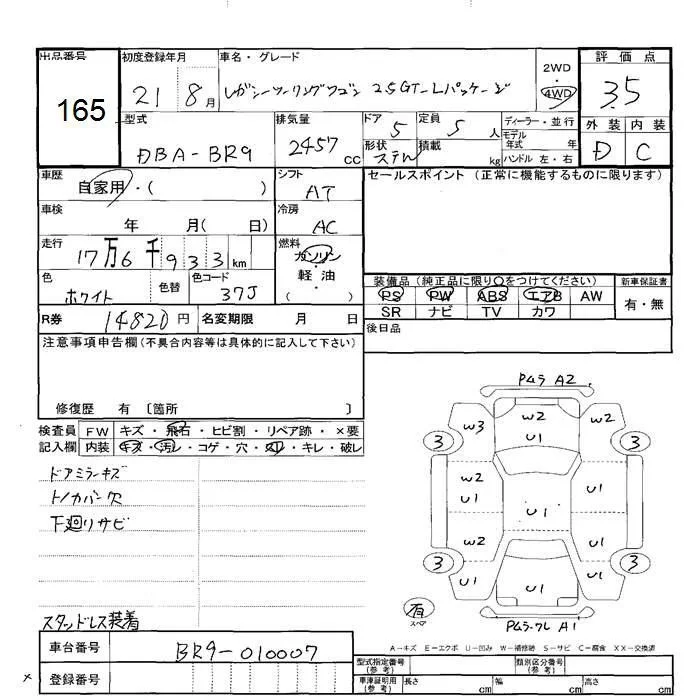 出品番号 初度登録年月 車名・グレード 2WD 4WD 評価点
165 21 8月 レガシーツーリングワゴン 2.5GT-Lパッケージ 3.5
型式 排気量 ドア 定員 ディーラー・並行 外装 内装
DBA-BR9 2457cc 5 5人 モデル年式 年 D C
形状 積載 kg ハンドル 左・右
ステW
車歴 自家用・( ) シフト AT セールスポイント (正常に機能するものに限ります)
車検 年 月( 日) 冷房 AC
走行 17万6千933km 燃料 ガソリン
軽・油
( )
色 ホワイト 色替 色コード 37J
装備品 (純正品に限り○をつけてください) 新車保証書
PS PW ABS エアB AW 有・無
SR ナビ TV カワ
R券 14820円 名変期限 月 日 後日品
注意事項申告欄(不具合内容等は具体的に記入して下さい)
修復歴 有 〔箇所 〕
検査員 FW キズ・飛石・ヒビ割・リペア跡・×要
記入欄 内装 キズ・汚レ・コゲ・穴・・キレ・破レ
ドアミラーキズ
トノカバー欠
下廻リサビ
スタッドレス装着
Pムラ A2
W3 W2 U1
3 3
W2 U1 U1
U1
W2 U1
3 3
U1 U1 U1
有 スペア
PムラワレA1
A-キズ E-エクボ U-凹み W-補修跡 S-サビ C-腐食 XX-交換済
車台番号 BR9-010007
登録番号
型式指定番号(参考) 類別区分番号(参考)
車庫証明用(参考) 長さ cm 幅 cm 高さ cm
×